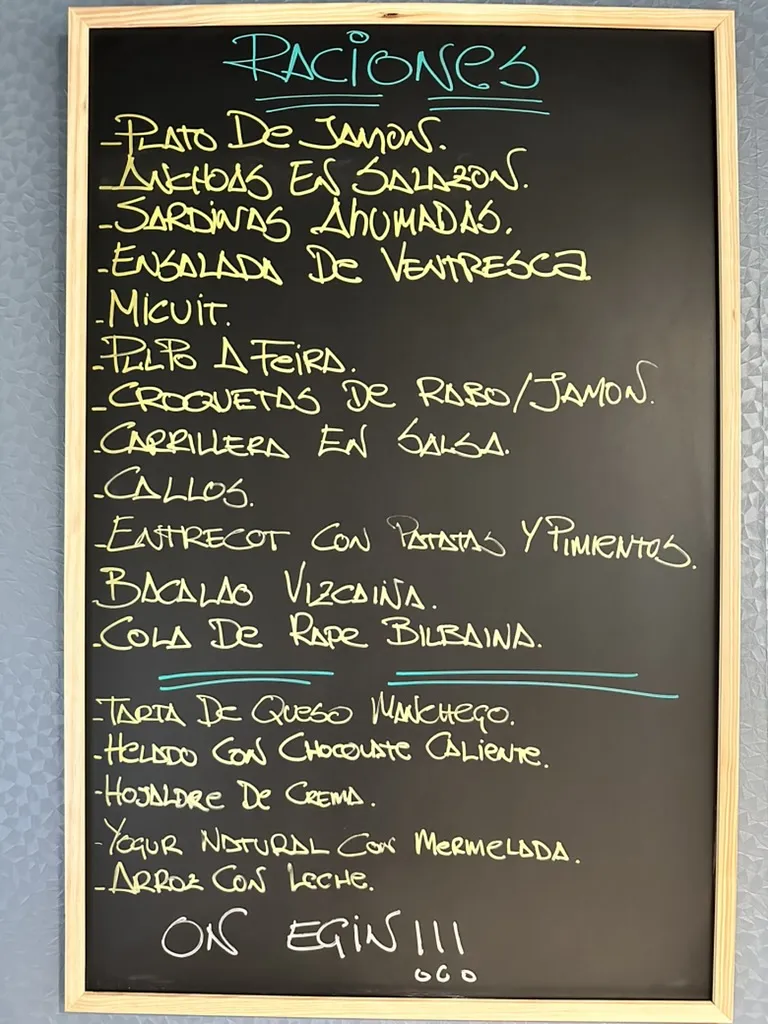 RACIONES
-PLATO DE JAMON.
-ANCHOAS EN SALAZON.
-SARDINAS AHUMADAS.
-ENSALADA DE VENTRESCA
-MICUIT.
-PULPO A FEIRA.
-CROQUETAS DE RABO/JAMON.
-CARRILLERA EN SALSA.
-CALLOS.
-ENTRECOT CON PATATAS Y PIMIENTOS.
-BACALAO VIZCAINA.
-COLA DE RAPE BILBAINA.
-TARTA DE QUESO MANCHEGO.
-HELADO CON CHOCOLATE CALIENTE.
-HOJALDRE DE CREMA.
-YOGUR NATURAL CON MERMELADA.
-ARROZ CON LECHE.
ON EGIN!!!